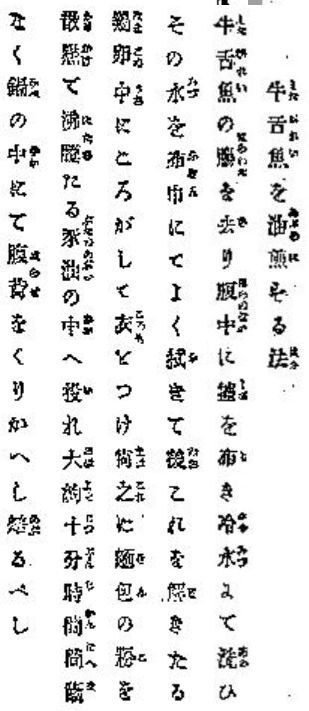 牛舌魚を油煎する法
牛舌魚の膓を去り腹中に鹽を布き冷水にて洗ひ
その水を布巾にてよく拭きて後これを解きたる
鶏卵中にころがして衣をつけ尚之に麺包の粉を
散懸て沸騰たる豕油の中へ投れ大約十分時間
なく鍋の中にて腹背をくりかへし るべし